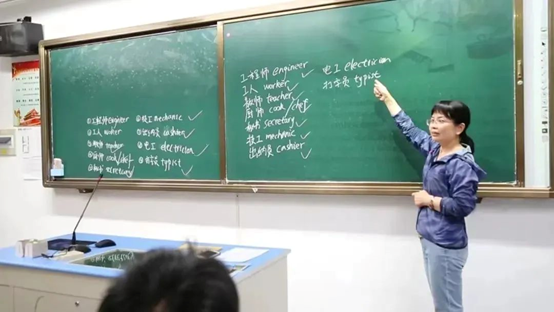 ①工程师 engineer
②工人 worker
③教师 teacher
④厨师 cook/chef
⑤秘书 secretary
⑥技工 mechanic ✓
⑦出纳员 cashier ✓
⑧电工 electrician ✓
⑨打字员 typist ✓
工程师 engineer ✓
工人 worker ✓
教师 teacher ✓
厨师 cook/chef ✓
秘书 secretary ✓
技工 mechanic ✓
出纳员 cashier ✓
电工 electrician
打字员 typist